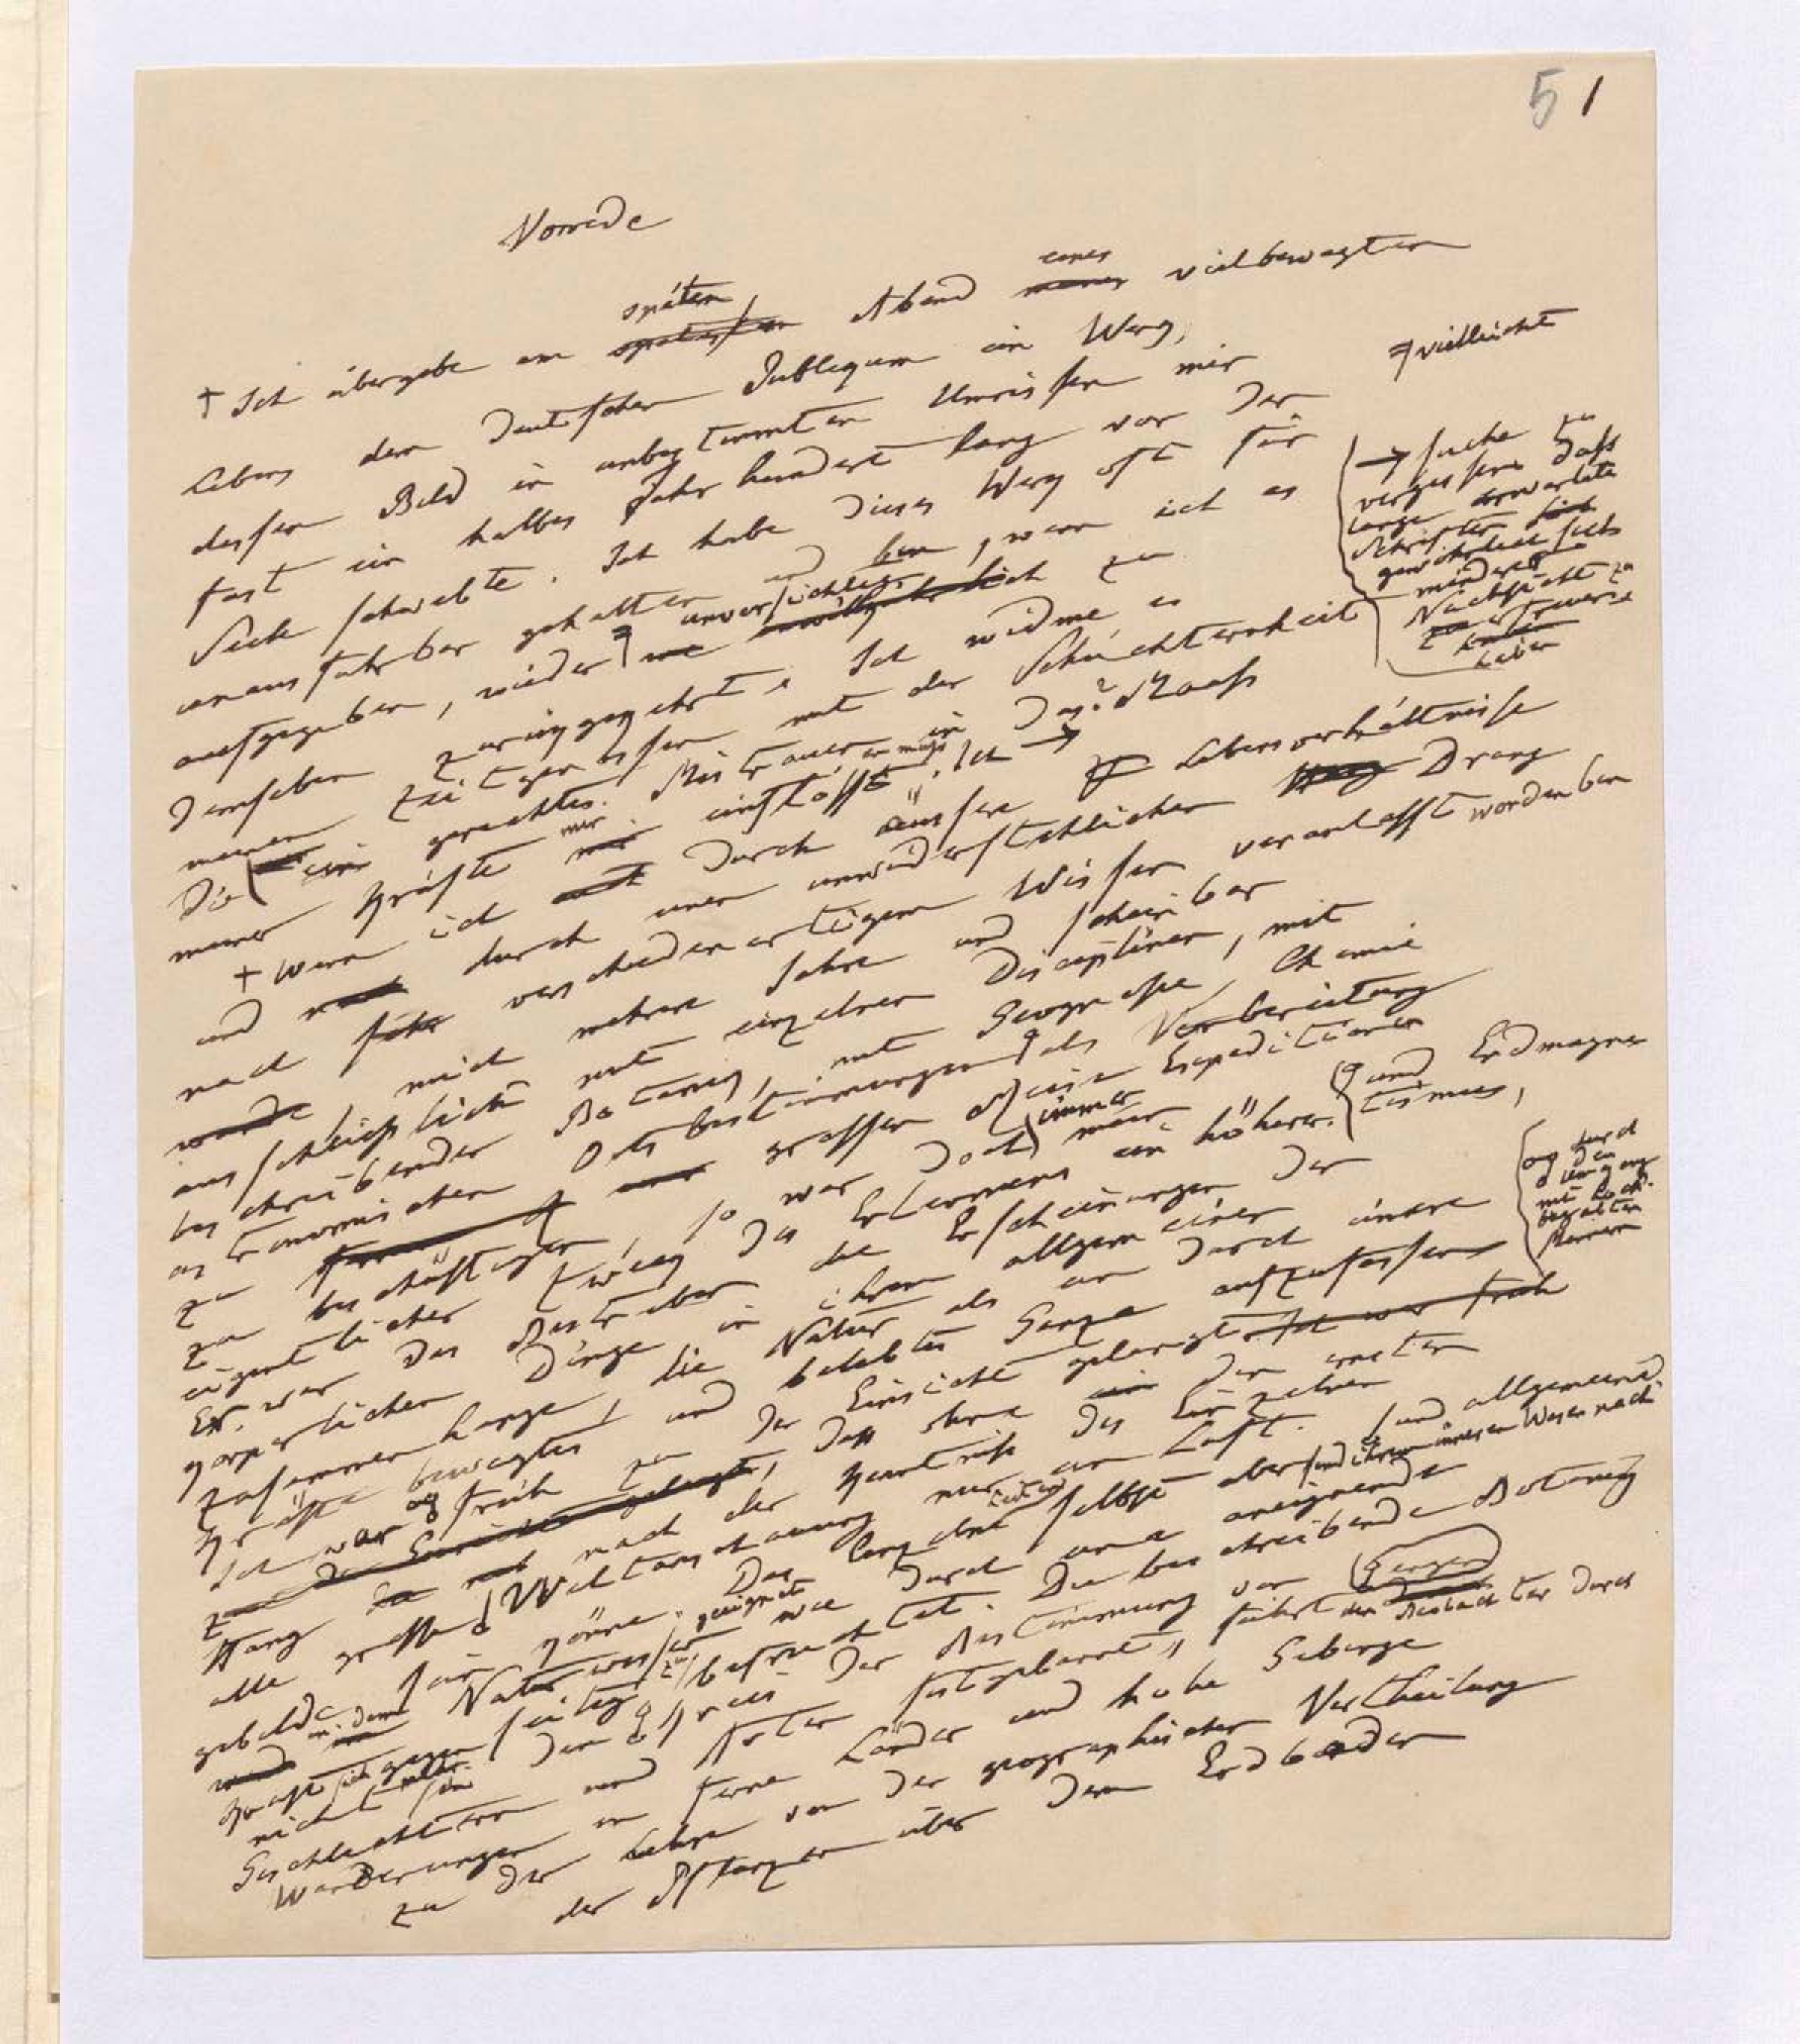 51
Vorrede
späten eines
+ Ich übergebe am spätesten Abend meines vielbewegten
Lebens dem deutschen Publikum ein Werk,
dessen Bild in unbestimmten Umrissen mir
fast ein halbes Jahrhundert lang vor der
Seele schwebte. Ich habe dieses Werk oft für
unausführbar gehalten und bin, wenn ich es
aufgegeben, wieder unvorsichtig zu
vielleicht
demselben zurückgekehrt. Ich widme es
meinen Zeitgenossen mit der Schüchternheit
die ein gerechtes Mistrauen in das Maass
meiner Kräfte mir einflössen muss. Ich →
→ suche zu
vergessen dass
lange erwartete
Schriften sich
gewöhnlich sich
minderer
Nachsicht zu
erfreuen
haben
+ Wenn ich durch äussere Lebensverhältnisse
und durch einen unwiderstehlichen Drang
nach verschiedenartigem Wissen veranlasst worden bin
mich mehrere Jahre und scheinbar
ausschließlich mit einzelnen Disciplinen, mit
beschreibender Botanik, mit Geognosie, Chemie
astronomischen Ortsbestimmungen als Vorbereitung
und Erdmagne
tismus,
zu grossen Expeditionen
zu beschäftigen, so war doch immer
eigentlicher Zweck des Erlernens ein höherer.
Es war das Bestreben die Erscheinungen der
körperlichen Dinge in ihrem allgemeinen
Zusammenhange, die Natur als ein durch innere
Kräfte bewegtes und belebtes Ganze aufzufassen
durch
den
Umgang
mit hoch
begabten
Männern
Ich war früh zu der Einsicht gelangt Ich war früh
zu der Einsicht gelangt, dass ohne den ernsten
Hang nach der Kenntniss des Einzelnen
alle grosse und allgemeine
Weltanschauung nur ein Luft
gebilde sein könne. Das Einzelne selbst aber
sind ihrem inneren Wesen nach
im Naturwissen geeignet wie durch eine aneignende
Kraft sich gegenseitig zu befruchten. Die beschreibende Botanik
nicht mehr in den Kreis der Bestimmung von
Geschlechtern und Arten festgebannt, führt den Beobachter durch
Wanderungen in ferne Länder und hohe Gebirge
zu der Lehre von der geographischen Vertheilung
der Pflanzen über dem Erdboden